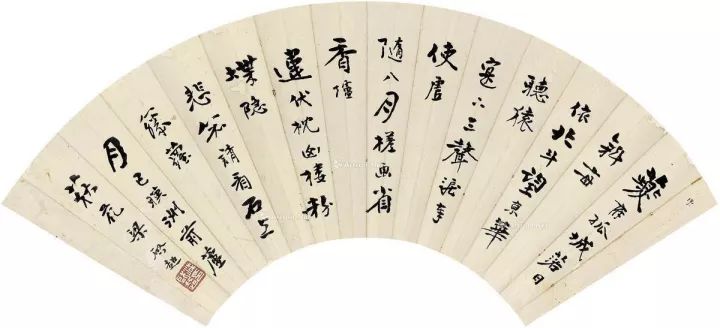 夔府孤城落日
斜每
依北斗望京華
聽猿
寔下三聲淚奉
使虛
隨八月槎画省
香爐
違伏枕山樓粉
堞隐
悲笳請看石上
藤蘿
月已暎洲前蘆
荻花 梁啟超